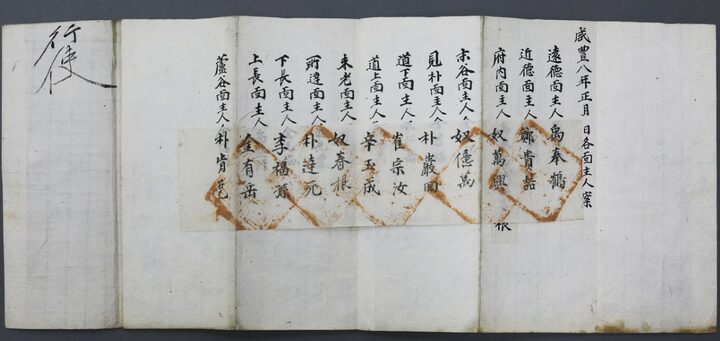 咸豊八年正月 日各面主人案
遠德面主人 禹奉鶴
近德面主人 鄭貴喆
府內面主人 奴萬興
宗谷面主人 奴億萬
見朴面主人 朴巖回
道下面主人 崔宗汝
道上面主人 辛玉成
末老面主人 奴春根
所達面主人 朴達死
下長面主人 李福孫
上長面主人 金有岳
蘆谷面主人 朴肯
根
行使